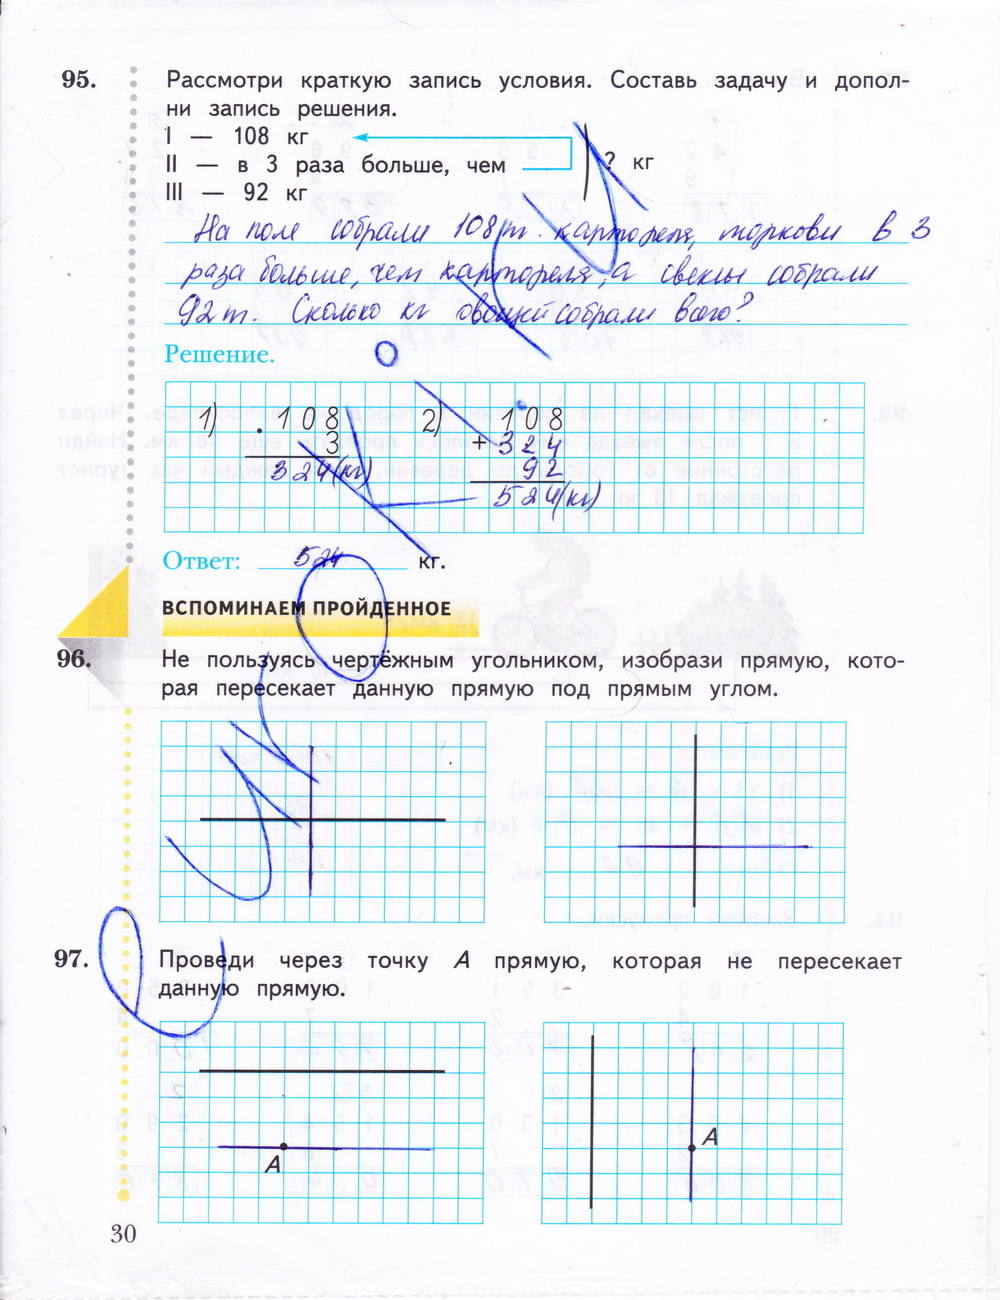 95. Рассмотри краткую запись условия. Составь задачу и допол-
ни запись решения.
I — 108 кг
II — в 3 раза больше, чем ? кг
III — 92 кг
На поле собрали 108 т. картофеля, моркови в 3
раза больше, чем картофеля, а свеклы собрали
92 т. Сколько кг овощей собрали всего?
Решение.
1) 108 2) 108
. 3 + 324
324 (кг) 92
524 (кг)
Ответ: 524 кг.
ВСПОМИНАЕМ ПРОЙДЕННОЕ
96. Не пользуясь чертёжным угольником, изобрази прямую, кото-
рая пересекает данную прямую под прямым углом.
97. Проведи через точку А прямую, которая не пересекает
данную прямую.
А
А
30